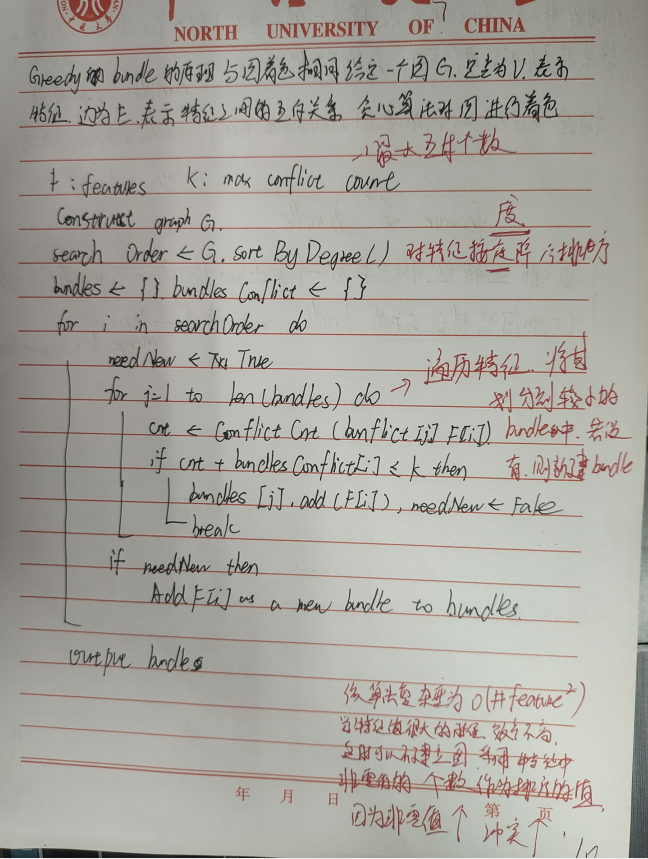 NORTH UNIVERSITY OF CHINA
7
Greedy bundle 的原理与图着色相同给定一个图G. 定点为V. 表示
特征. 边为E. 表示特征之间的互斥关系 贪心算法对图进行着色
最大互斥个数
F : features K : max conflict count
Construct graph G.
度
search Order ← G. sort By Degree ( ) 对特征按度降序排序
bundles ← { }. bundles Conflict ← { }
for i in searchOrder do
needNew ← True
遍历特征. 将其
for j=1 to len (bundles) do → 划分到较小的
cnt ← Conflict Cnt (bunflict [j] F[i]) bundle中. 若没
if cnt + bundles Conflict [i] ≤ k then 有. 则新建 bundle
bundles [j]. add (F[i]), needNew ← False
break
if needNew then
Add F[i] as a new bundle to bundles.
output bundles
该算法复杂度为 O(#feature²)
当特征值很大的时候 效率不高,
这时可以不建立图 利用特征中
非零值的个数作为排序的值,
年 月 日 第 页
因为非零值个↑ 冲突↑